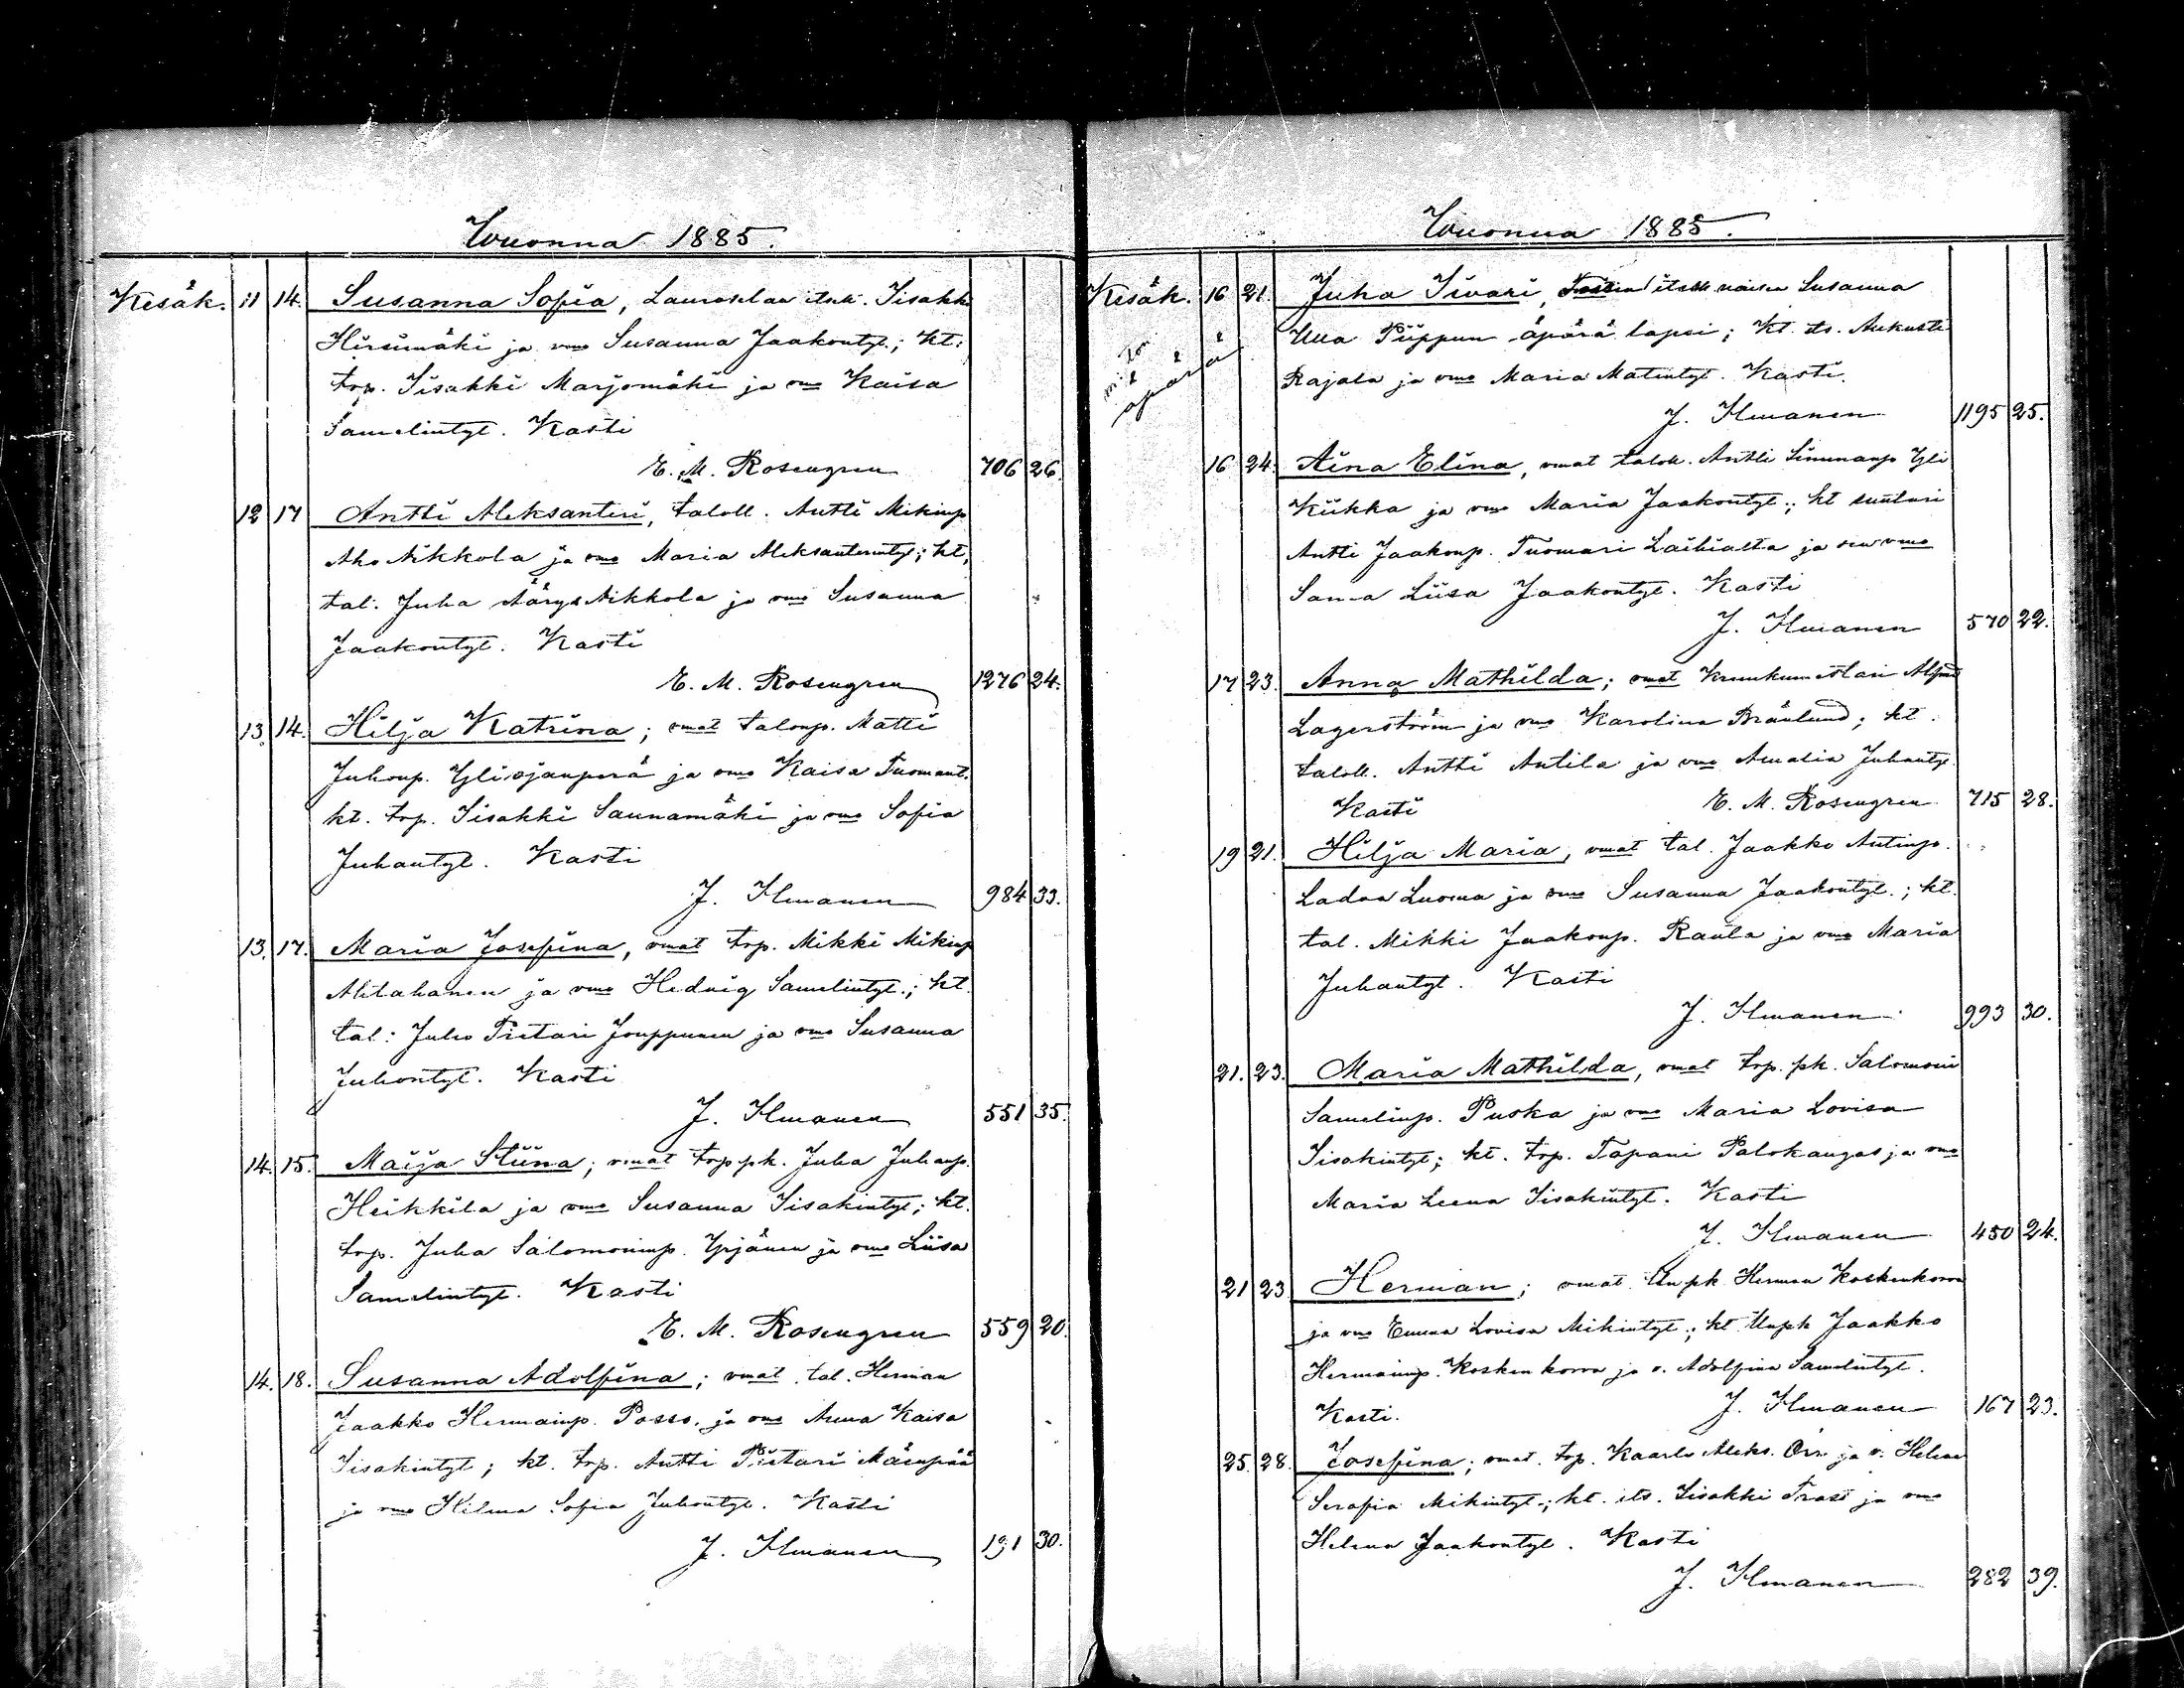 Wuonna 1885.
Kesäk. 11 14. Susanna Sofia, itsk. Iisakki
Hirsimäki ja vmo Susanna Jaakontyt.; kt:
trp. Iisakki Marjomäki ja vmo Kaisa
Samelintyt. Kasti
E. M. Rosengren 706 26.
12 17 Antti Aleksanteri, taloll. Antti Mikinp
Aho Nikkola ja vmo Maria Aleksanterintyt; kt,
tal. Juha Nikkola ja vmo Susanna
Jaakontyt. Kasti
E. M. Rosengren 1276 24.
13. 14. Hilja Katrina; vmat talonp. Matti
Juhonp. Yliojanperä ja vmo Kaisa Tuomant.
kt. trp. Iisakki Saunamäki ja vmo Sofia
Juhantyt. Kasti
J. Ilmanen 984 33.
13. 17. Maria Josefina, vmat trp. Mikki Mikinp
Alitahanen ja vmo Hedvig Samelintyt.; kt.
tal: Juho Pietari Jouppunen ja vmo Susanna
Juhontyt. Kasti
J. Ilmanen 551 35.
14. 15. Maija Stiina; vmat trp pk. Juha Juhanp.
Heikkilä ja vmo Susanna Iisakintyt; kt.
trp. Juha Salomoninp. Yrjänen ja vmo Liisa
Samelintyt. Kasti
E. M. Rosengren 559 20.
14. 18. Susanna Adolfina; vmat tal. Herman
Jaakko Hermanninp. Passo, ja vmo Anna Kaisa
Iisakintyt; kt. trp. Antti Pietari Mäenpää
ja vmo Hilma Sofia Juhontyt. Kasti
J. Ilmanen 191 30.
Wuonna 1885.
Kesäk. 16 21. Juha Iivari, itsell. naisen Susanna
Ulla Piippun äpärä lapsi; kt. its. Aukusti
äpärä
Rajala ja vmo Maria Matintyt. Kasti.
J. Ilmanen 1195 25.
16 24. Aina Elina, vmat taloll. Antti Simunanp Yli
Kiikka ja vmo Maria Jaakontyt.; kt suutari
Antti Jaakonp. Tuomari Laihialta ja sen vmo
Sanna Liisa Jaakontyt. Kasti
J. Ilmanen 570 22.
17 23. Anna Mathilda; vmat Kruukumestari Alfred
Lagerström ja vmo Karolina Bränlund; kt.
taloll. Antti Antila ja vmo Amalia Juhantyt
Kasti E. M. Rosengren 715 28.
19 21. Hilja Maria, vmat tal. Jaakko Antinp.
Luoma ja vmo Susanna Jaakontyt.; kt.
tal. Mikki Jaakonp. Raula ja vmo Maria
Juhantyt. Kasti
J. Ilmanen 993 30.
21. 23. Maria Mathilda, vmat trp. pk. Salomoni
Samelinp. Puska ja vmo Maria Lovisa
Iisakintyt; kt. trp. Tapani Palokangas ja vmo
Maria Leena Iisakintyt. Kasti
J. Ilmanen 450 24.
21 23 Herman; vmat pk Herman Koskenkorva
ja vmo Emma Lovisa Mikintyt; kt Jaakko
Hermaninp. Koskenkorva ja v. Adolfina Samelintyt.
Kasti. J. Ilmanen 167 23.
25. 28. Josefina; vmat. trp. Kaarlo Aleks. ja v. Helena
Serafia Mikintyt.; kt. its. Iisakki Trast ja vmo
Helena Jaakontyt. Kasti
J. Ilmanen 282 39.